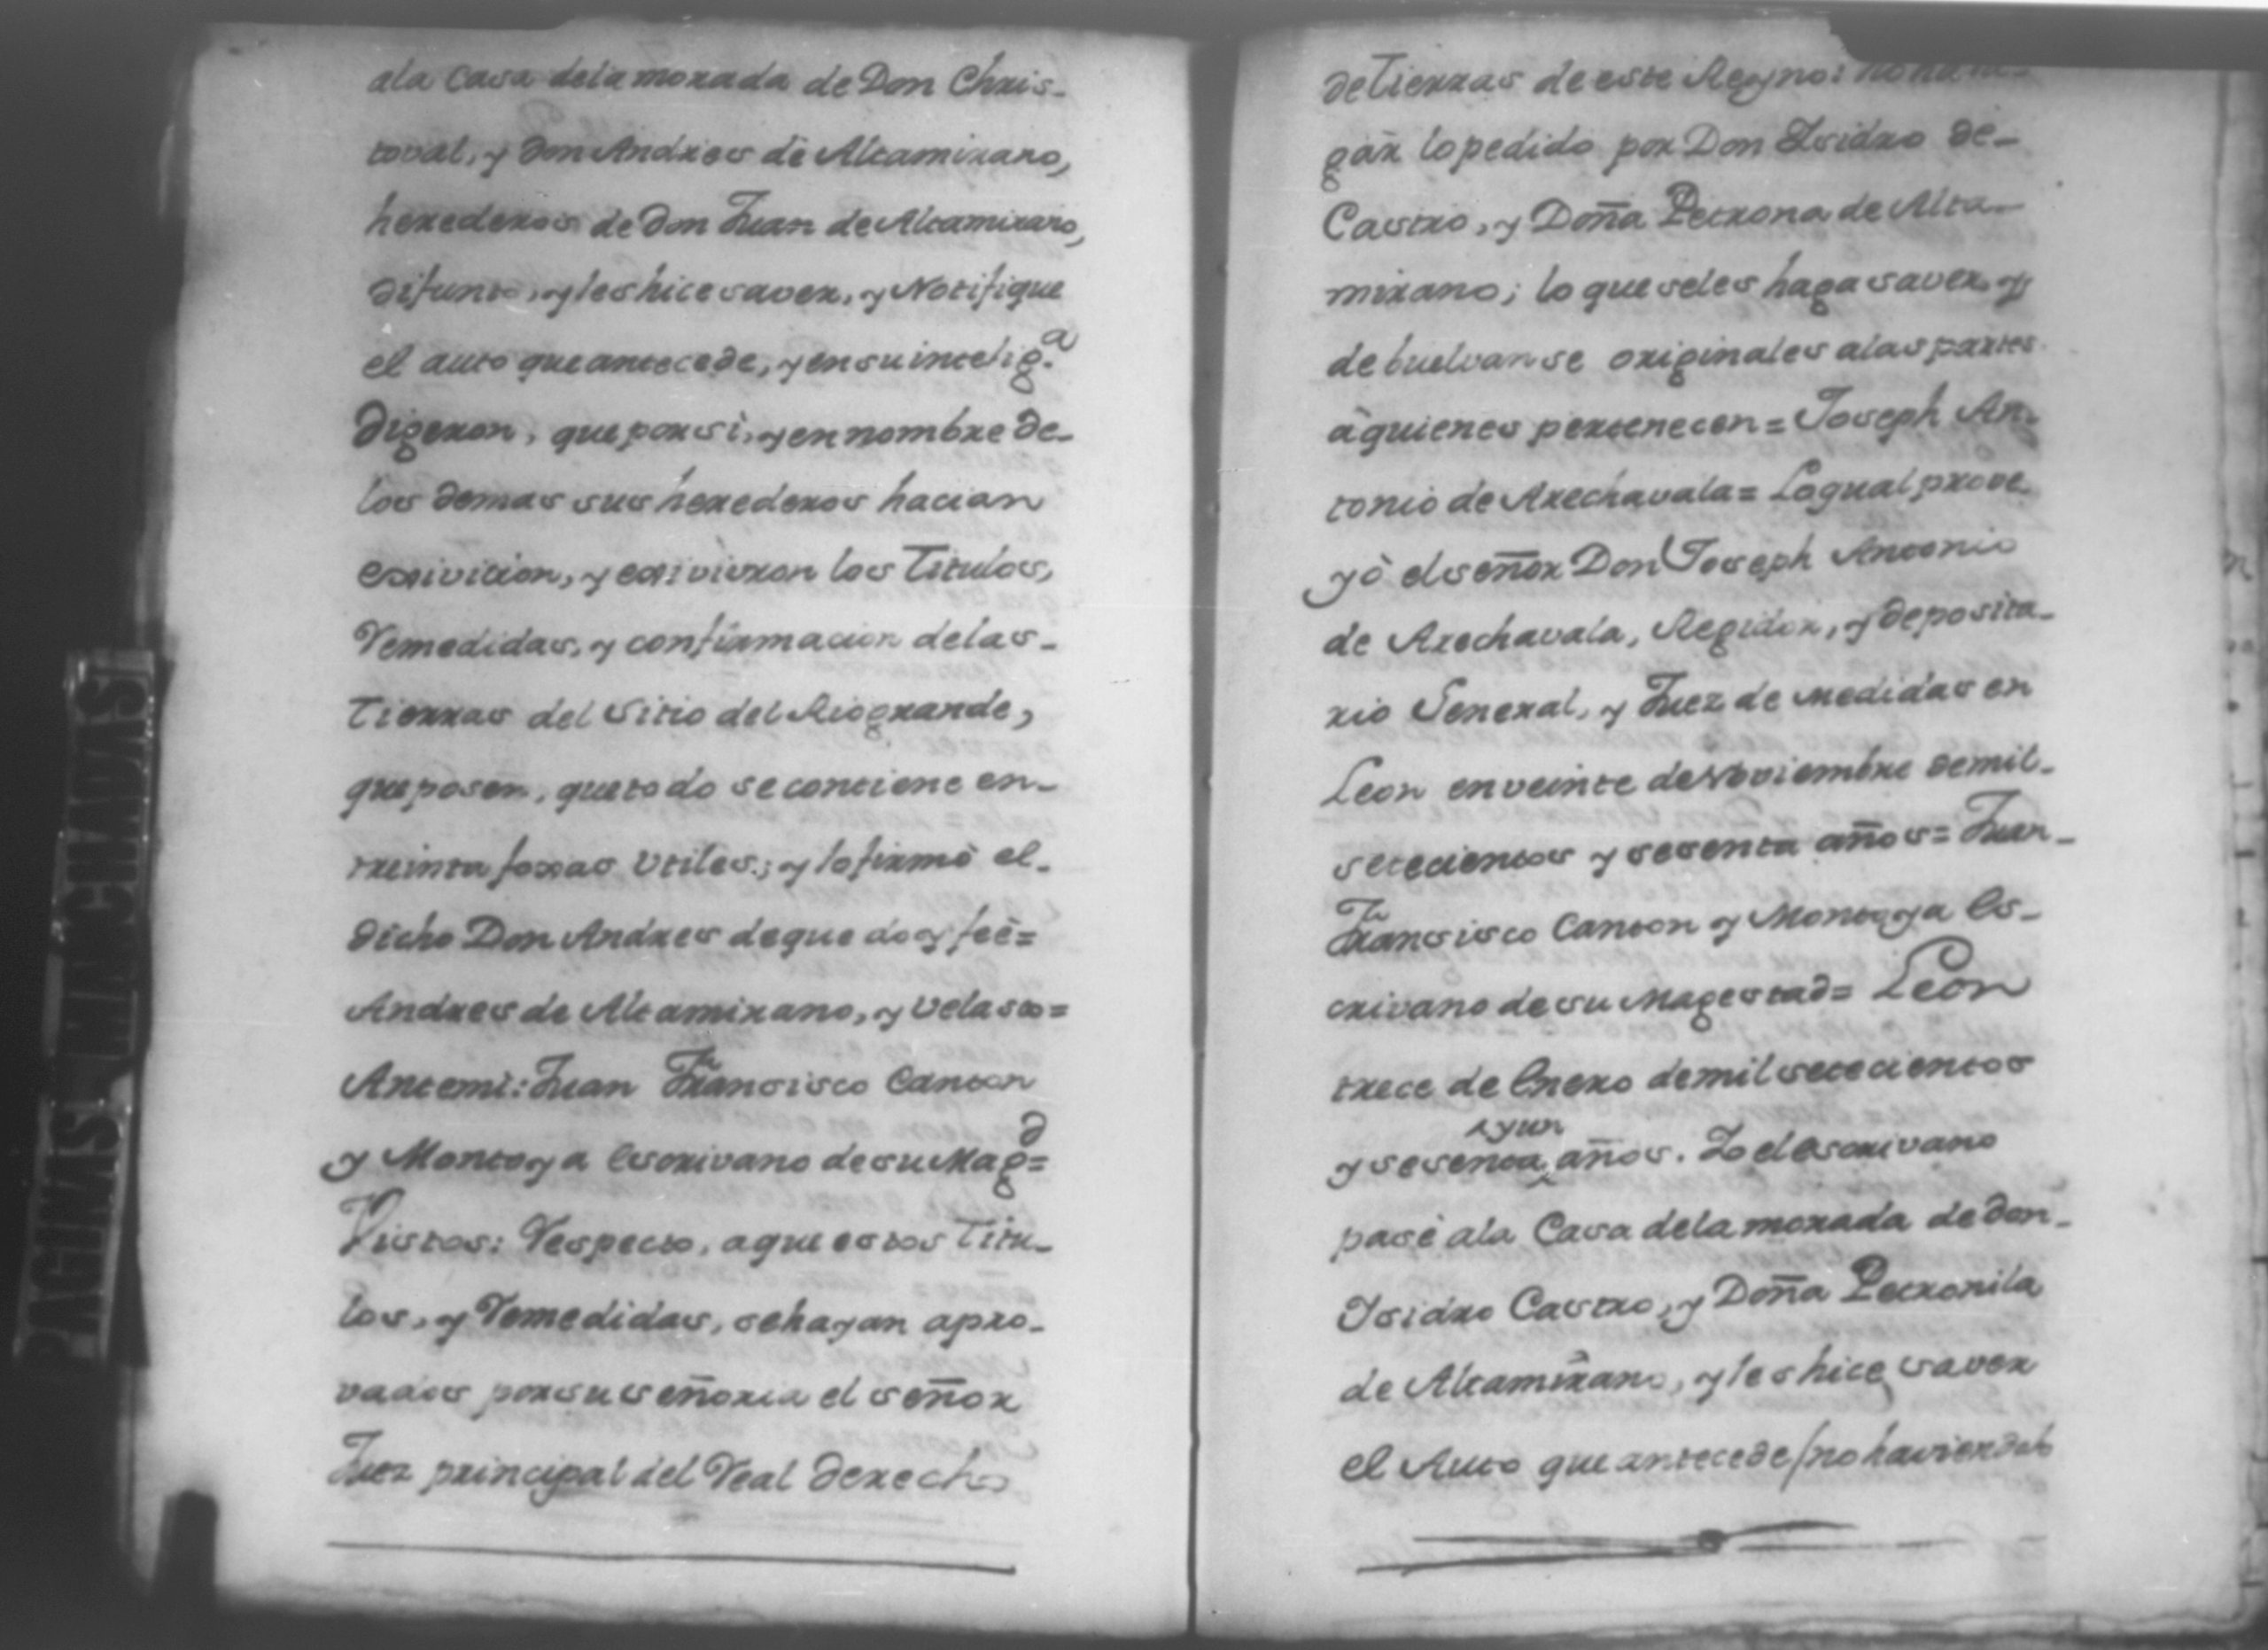 ala casa dela morada de Don Chris-
toval, y don Andres de Altamirano,
herederos de don Juan de Altamirano,
difunto, y les hice saver, y Notifique
el auto que antecede, y en su intelig.a
digeron, que por si, y en nombre de-
los demas sus herederos hacian
exsivicion, y exsivieron los Titulos,
Remedidas, y confirmacion delas-
Tierras del Sitio del Riogrande,
que poseen, que todo se contiene en-
treinta foxas utiles; y lo firmò el-
dicho Don Andres de que doy feè=
Andres de Altamirano, y Velasco=
Antemi: Juan Francisco Canton
y Montoya Escrivano de su Magd=
Vistos: Respecto, a que estos Titu-
los, y Remedidas, se hayan apro-
vados por su señoria el señor
Juez principal del Real derecho
de Tierras de este Reyno:
gàr lo pedido por Don Isidro de-
Castro, y Doña Petrona de Alta-
mirano; lo que seles haga saver y
debuelvanse originales alas partes
à quienes pertenecen= Joseph An-
tonio de Arechavala= Lo qual prove
yò el señor Don Joseph Antonio
de Arechavala, Regidor, y deposita-
rio General, y Juez de medidas en
Leon en veinte de Noviembre de mil-
setecientos y sesenta años= Juan-
Francisco Canton y Montoya Es-
crivano de su Magestad= Leon
trece de Enero de mil setecientos
y un
y sesenta años. Yo el escrivano
pasè ala Casa dela morada de don-
Isidro Castro, y Doña Petronila
de Altamirano, y les hice saver
el Auto que antecede (no haviendolo
PAGINAS MANCHADAS